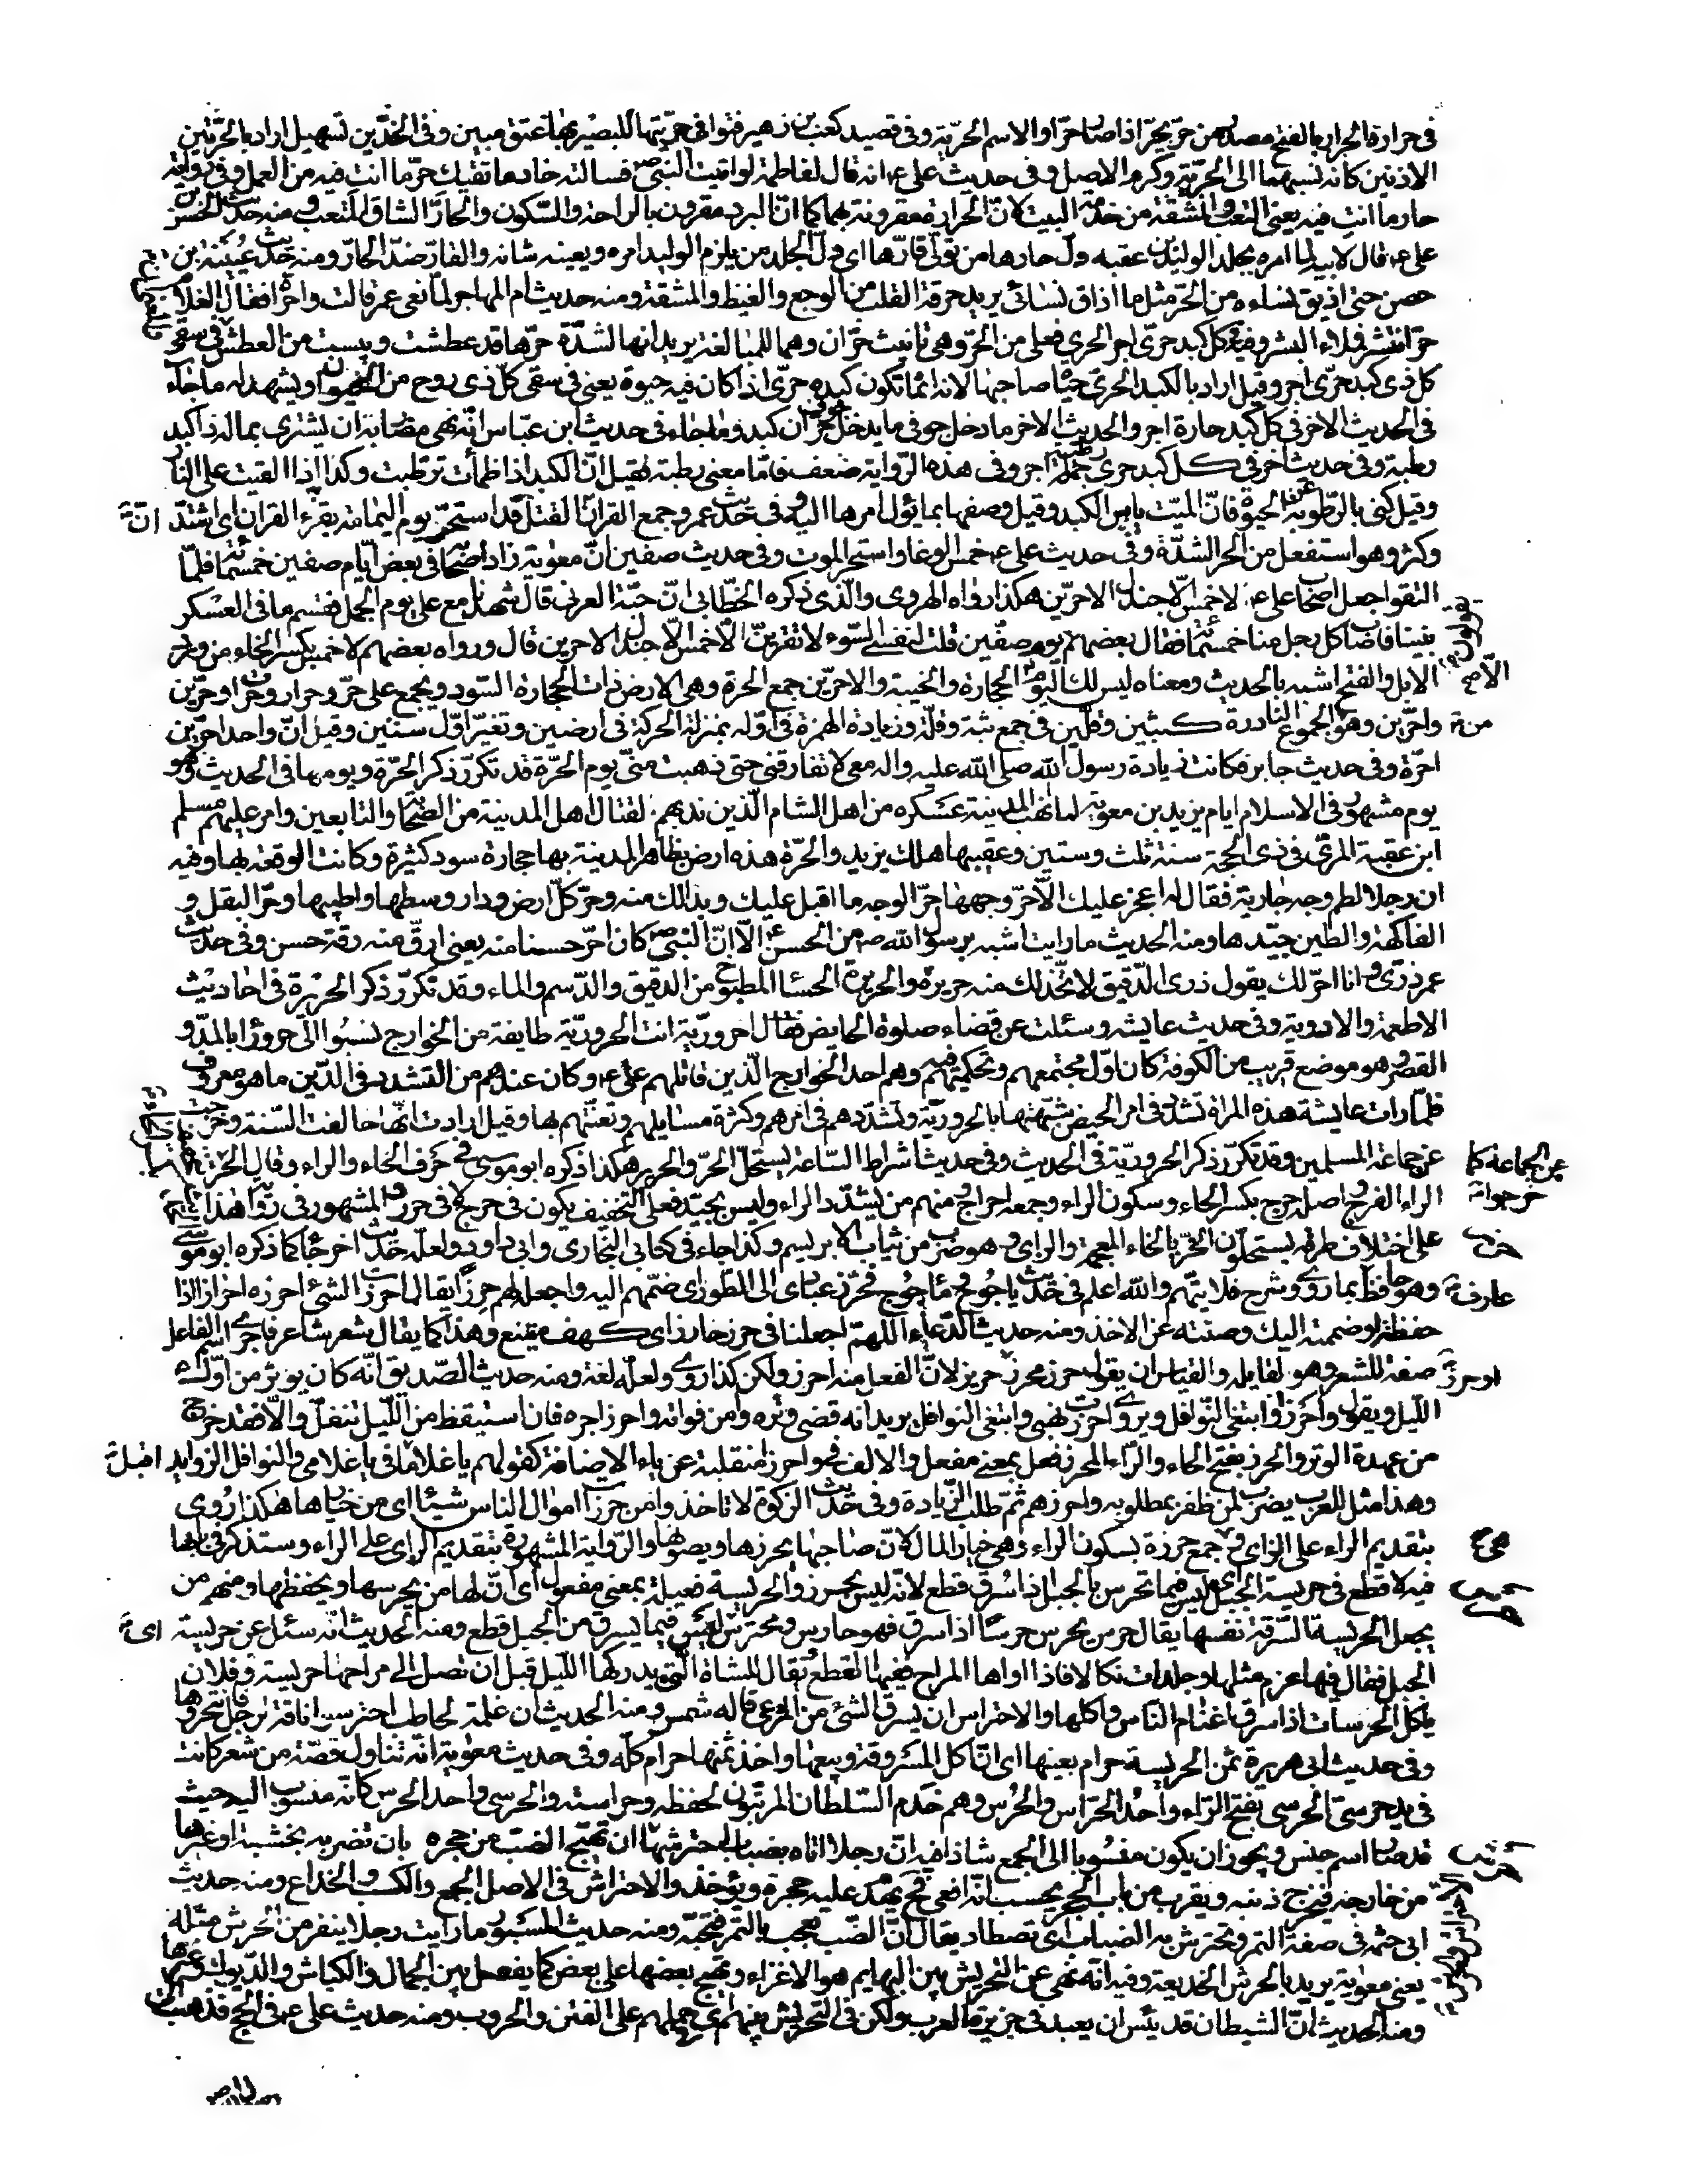 فى حرارة الحرار بالفتح مصدر من حرّ يحرّ اذا صار حرّا والاسم الحريّة وفى قصيد كعب بن زهير قنواء فى حرّتيها للبصير بها عتق مبين وفى الخدّين تسهيل اراد بالحرّتين
الاذنين كانه نسبهما الى الحرّيّة وكرم الاصل وفى حديث على ع انه قال لفاطمة لو اتيت النبىّ ص فسالته خادما تقيك حرّ ما انت فيه من العمل وفى رواية
حار ما انت فيه يعنى التعب والمشقة من خدمة البيت لانّ الحرارة مقرونة بهما كما انّ البرد مقرون بالراحة والسّكون والحارّ الشاق المتعب ومنه حديث الحسن بن
على ع قال لابيه لما امره بجلد الوليد بن عقبه ولّ حارها من تولّى قارّها اى ولّ الجلد من يلزم الوليد امره ويعينه شانه والقارّ ضدّ الحارّ ومنه حديث عُيَيْنَة بن
حصن حتى اذيق نساءه من الحرّ مثل ما اذاق نسائى يريد حرقة القلب من الوجع والغيظ والمشقة ومنه حديث ام المهاجر لما نعى عمر قالت واحرّاه فقال الغلام
حرّ انتشر فملاء البشر وفيه كل كبد حرّى اجر الحرى فعلى من الحرّ وهى تانيث حرّان وهما للمبالغة يريد انها لشدّة حرّها قد عطشت ويبست من العطش فى سقى
كل ذى كبد حرّى اجر وقيل اراد بالكبد الحرّى حيوة صاحبها لانه انما تكون كبده حرّى اذا كان فيه حيوة يعنى فى سقى كلّ ذى روح من الحيوان ويشهد له ما جاء
فى الحديث الاخر فى كل كبد حارة اجر والحديث الاخر ما دخل جوفى ما يدخل جوف حرّان كبد وما جاء فى حديث ابن عبّاس انّه نهى مضاربه ان يشترى بماله ذا كبد
رطبة وفى حديث اخر فى كل كبد حرى رطبة اجر وفى هذه الرّواية ضعف فامّا معنى رطبة فقيل انّ الكبد اذا ظمأت ترطّبت وكذا اذا القيت على النار
وقيل كنى بالرّطوبة عن الحيوة فانّ الميّت يابس الكبد وقيل وصفها بما يؤل امرها اليه وفى حديث عمر وجمع القران انّ القتل قد استحرّ يوم اليمامة بقرّاء القران اى اشتدّ
وكثر وهو استفعل من الحر الشدّة وفى حديث على ع حمس الوغا واستحر الموت وفى حديث صفين انّ معوية زاد اصحابه فى بعض ايّام صفين خمسمائة فلمّا
التقوا جعل اصحاب على ع لا خمس الّا جندل الاحرّين هكذا رواه الهروى والّذى ذكره الخطّابى انّ حبّة العرنى قال شهدنا مع على يوم الجمل فقسم ما فى العسكر
بيننا فاصاب كل رجل منا خمسمائة فقال بعضهم يوم صفّين قلت لنفسى السّوء لا تفرّين الّا خمس الّا جندل الاحرين قال ورواه بعضهم لا خمس بكسر الخاء من ورد
الابل والفتح اشبه بالحديث ومعناه ليس لك اليوم الّا الحجارة والخيبة والاحرّين جمع الحرة وهى الارض ذات الحجارة السّود ويجمع على حرّ وحرار وحرّات وحرّين
واحرّين وهو من الجموع النادرة كثبين وقلّين فى جمع ثبة وقلّة وزيادة الهمزة فى اوّله بمنزلة الحركة فى ارضين وتغيّر اوّل سنين وقيل انّ واحد احرّين
احرّة وفى حديث جابر فكانت زيادة رسول الله صلى الله عليه واله معى لا تفارقنى حتى ذهبت منّى يوم الحرّة قد تكرّر ذكر الحرّة ويومها فى الحديث وهو
يوم مشهور فى الاسلام ايام يزيد بن معوية لما نهب المدينة عسكره من اهل الشام الّذين ندبهم لقتال اهل المدينة من الصّحابة والتابعين وامر عليهم مسلم
ابن عقبة المرّى فى ذى الحجة سنة ثلث وستين وعقيبها هلك يزيد والحرّة هذه ارض بظاهر المدينة بها حجارة سود كثيرة وكانت الوقعة بها وفيه
ان رجلا لطم وجه جارية فقال له اعجز عليك الّا حرّ وجهها حرّ الوجه ما اقبل عليك وبدا لك منه وحرّ كلّ ارض ودار وسطها واطيبها وحرّ البقل و
الفاكهة والطين جيّدها ومنه الحديث ما رايت اشبه برسول الله ص من الحسن ع الّا انّ النبىّ ص كان احرّ حسنا منه يعنى ارقّ منه رقة حسن وفى حديث
عمر ذرّى وانا احرّ لك يقول ذرى الدّقيق لاتّخذ لك منه حريرة والحريرة الحسا المطبوخ من الدقيق والدّسم والماء وقد تكرّر ذكر الحريرة فى احاديث
الاطعمة والادوية وفى حديث عايشه وسئلت عن قضاء صلوة الحايض فقال احروريّة انت الحروريّة طايفة من الخوارج نسبُوا الى حرورا بالمدّ و
القصر وهو موضع قريب من الكوفة كان اوّل مجتمعهم وتحكيمهم فيه وهم احد الخوارج الّذين قاتلهم على ع وكان عندهم من التشدد فى الدّين ما هو معروف
فلمّا رات عايشة هذه المراة تشدّد فى امر الحيض شبّهتها بالحروريّة وتشدّدهم فى امرهم وكثرة مسايلهم وتعنّتهم بها وقيل ارادت انّها خالفت السّنة وخرجت
عن جماعة المسلمين وقد تكرّر ذكر الحروريّة فى الحديث وفى حديث اشراط السّاعة يستحلّ الحرّ والحرير هكذا ذكره ابو موسى فى حرف الحاء والراء وقال الحر بتخفيف
الراء الفرج واصله حرح بكسر الحاء وسكون الراء وجمعه احراح ومنهم من يشدّد الراء وليس بجيّد فعلى التخفيف يكون فى حرح لا فى حرر والمشهور فى رواية هذا
على اختلاف طرقه يستحلّون الخزّ بالخاء المعجمة والزاى وهو ضرب من ثياب الابريسم وكذا جاء فى كتابى البخارى وابى داود ولعلّه حديث اخر جاء كما ذكره ابو موسى
وهو حافظ عارف بما روى وشرح فلا يتّهم والله اعلم فى حديث ياجُوج وماجُوج فحرّز عبادى الى الطّور اى ضمّهم اليه واجعله لهم حِرزًا يقال احرزت الشئ احرزه احرازا اذا
حفظته او ضممته اليك وصنته عن الاخذ ومنه حديث الدّعاء اللّهم اجعلنا فى حرز حارز اى كهف منيع وهذا كما يقال شعر شاعر فاجرى اسم الفاعل
صفة للشعر وهو لقايله والقياس ان يقول حرز محرز او حرز حريز لانّ الفعل منه احرز ولكن كذا روى ولعلّه لغة ومنه حديث الصّديق انّه كان يوتر من اوّل
اللّيل ويقول واحَرَزا وابتغى النّوافل ويروى احرزت نهبى وابتغى النوافل يريد انه قضى وتره وامن فواته واحرز اجره فان استيقظ من اللّيل تنفلّ والّا فقد خرج
من عهدة الوتر والحرز بفتح الحاء والراء المحرز فعل بمعنى مفعل والالف فى واحرزا منقلبة عن ياء الاضافة كقولهم يا غلاما اقبل فى يا غلامى والنوافل الزوايد
وهذا مثل للعرب يضرب لمن ظفر بمطلوبه واحرزه ثمّ طلب الزّيادة وفى حديث الزكوة لا تاخذوا من حرزات اموال الناس شيئًا اى من خيارها هكذا رُوى
بتقديم الراء على الزاى وهى جمع حرزة بسكون الراء وهى خيار المال لانّ صاحبها يحرزها ويصونها والرّواية المشهورة بتقديم الزاى على الراء وستذكر فى بابها
فيه لا قطع فى حريسة الجبل اى ليس فيما تحرس بالجبل اذا سُرق قطع لانّه ليس بحرز والحريسة فعيلة بمعنى مفعولة اى انّ لها من يحرسها ويحفظها ومنهم من
يجعل الحريسة السّرقة نفسها يقال حرس يحرس حرسًا اذا سرق فهو حارس ومحترس اى ليس فيما يسرق من الجبل قطع ومنه الحديث انّه سئل عن حريسة
الجبل فقال فيها غرم مثلها وجلدات نكالا فاذا اواها المراح ففيها القطع يُقال للشاة الّتى يدركها اللّيل قبل ان تصل الى مراحها حريسة وفلان
ياكل الحرسات اذا سرق اغنام الناس واكلها والاحتراس ان يسرق الشئ من المرعى قاله شمر ومنه الحديث ان غلمة لحاطب احترسوا ناقة لرجل فانتحروها
وفى حديث ابى هريرة ثمن الحريسة حرام بعينها اى انّ اكل المسروقة وبيعها واخذ ثمنها حرام كلّه وفى حديث معوية انّه تناول قصّة من شعر كانت
فى يد حرسىّ الحرسى بفتح الرّاء واحد الحرّاس والحُرس وهم خدم السّلطان المرتّبون لحفظه وحراسته والحرسى واحد الحرس كانّه منسوب اليه حيث
قد صار اسم جنس ويجوز ان يكون منسُوبا الى الجمع شاذا فيه انّ رجلا اتاه بضباب احترشها ان تهيّج الضبّ من جحره بان تضربه بخشبة او غيرها
من خارجه فيخرج ذنبه ويقرب من باب الجحر يحسب انّه افعى فح يهدّ عليه جحره ويؤخذ والاحتراش فى الاصل الجمع والكسب والخداع ومنه حديث
ابى حثمه فى صفة التمر وتحترش به الضباب اى تصطاد يقال انّ الضّب يعجب بالتمر فتحبّه ومنه حديث المسور ما رايت رجلا ينفر من الحرش مثله
يعنى معوية يريد بالحرش الخديعة وفيه انّه نهى عن التحريش بين البهايم هو الاغراء وتهييج بعضها على بعض كما يفعل بين الجمال والكباش والدّيوك وغيرها
ومنه الحديث انّ الشيطان قد يئس ان يعبد فى جزيرة العرب ولكن فى التحريش بينهم اى حملهم على الفتن والحروب ومنه حديث على ع فى الحج فذهبت الى